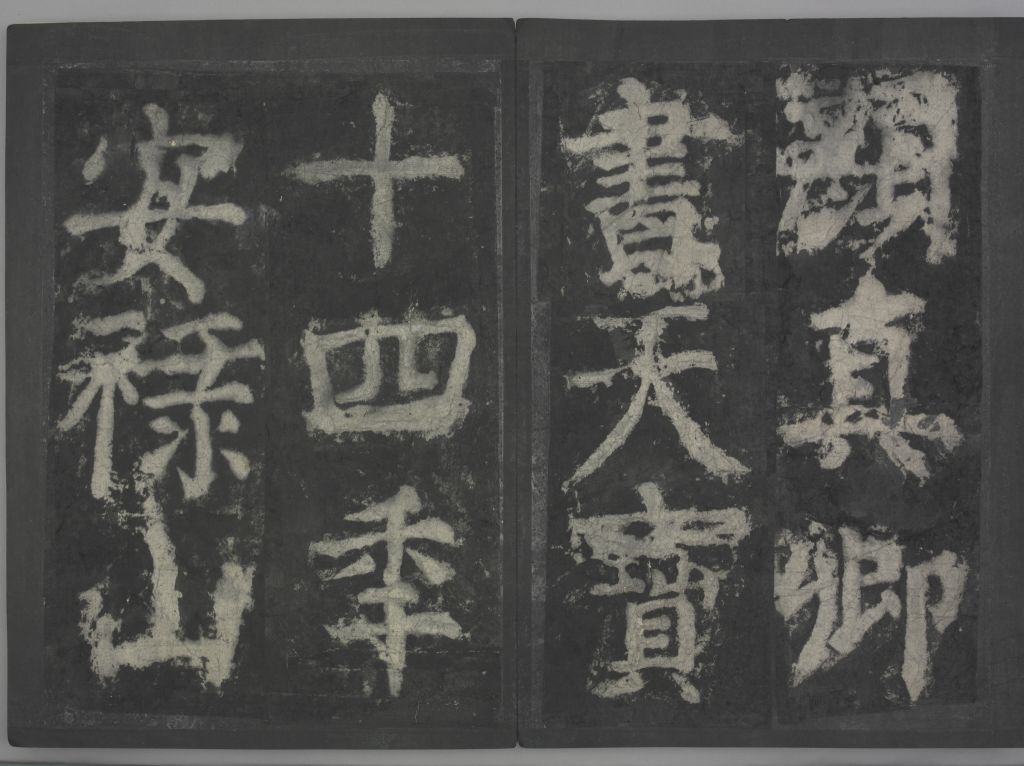 顏真卿
書天寶
十四秊
安祿山